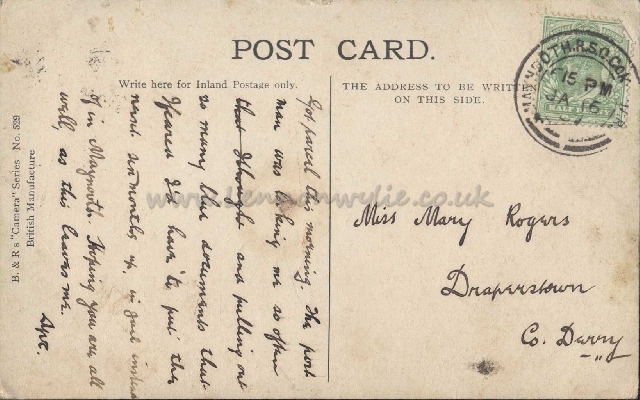 POST CARD.
Write here for Inland Postage only.
THE ADDRESS TO BE WRITTEN
ON THIS SIDE.
B. & R's "Camera" Series - No. 529
British Manufacture
MAYNOOTH. R.S.O. CO.
15 PM
JA 16
Got parcel this morning. The post
man was asking me so often
that I thought and pulling out
so many like documents that
I feared I'd have to put the
next six months up in gaol instead
of in Maynooth. Hoping you are all
well, as this leaves me.
Miss Mary Rogers
Draperstown
Co. Derry
www.lennonwylie.co.uk